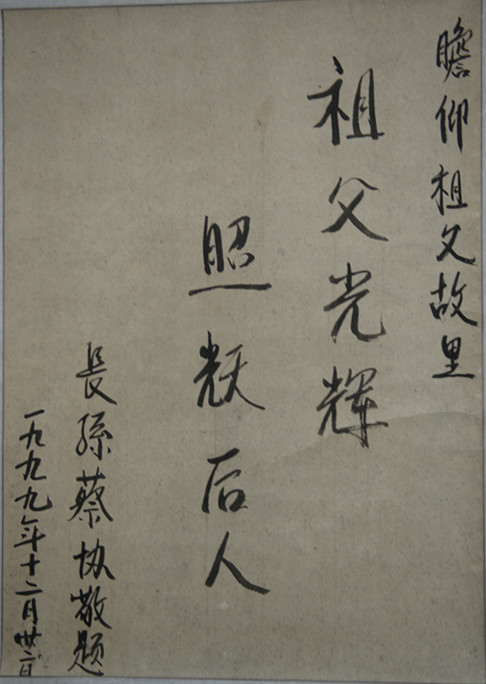 瞻仰祖父故里
祖父光輝
照耀后人
長孫蔡协敬题
一九九九年十二月廿二日